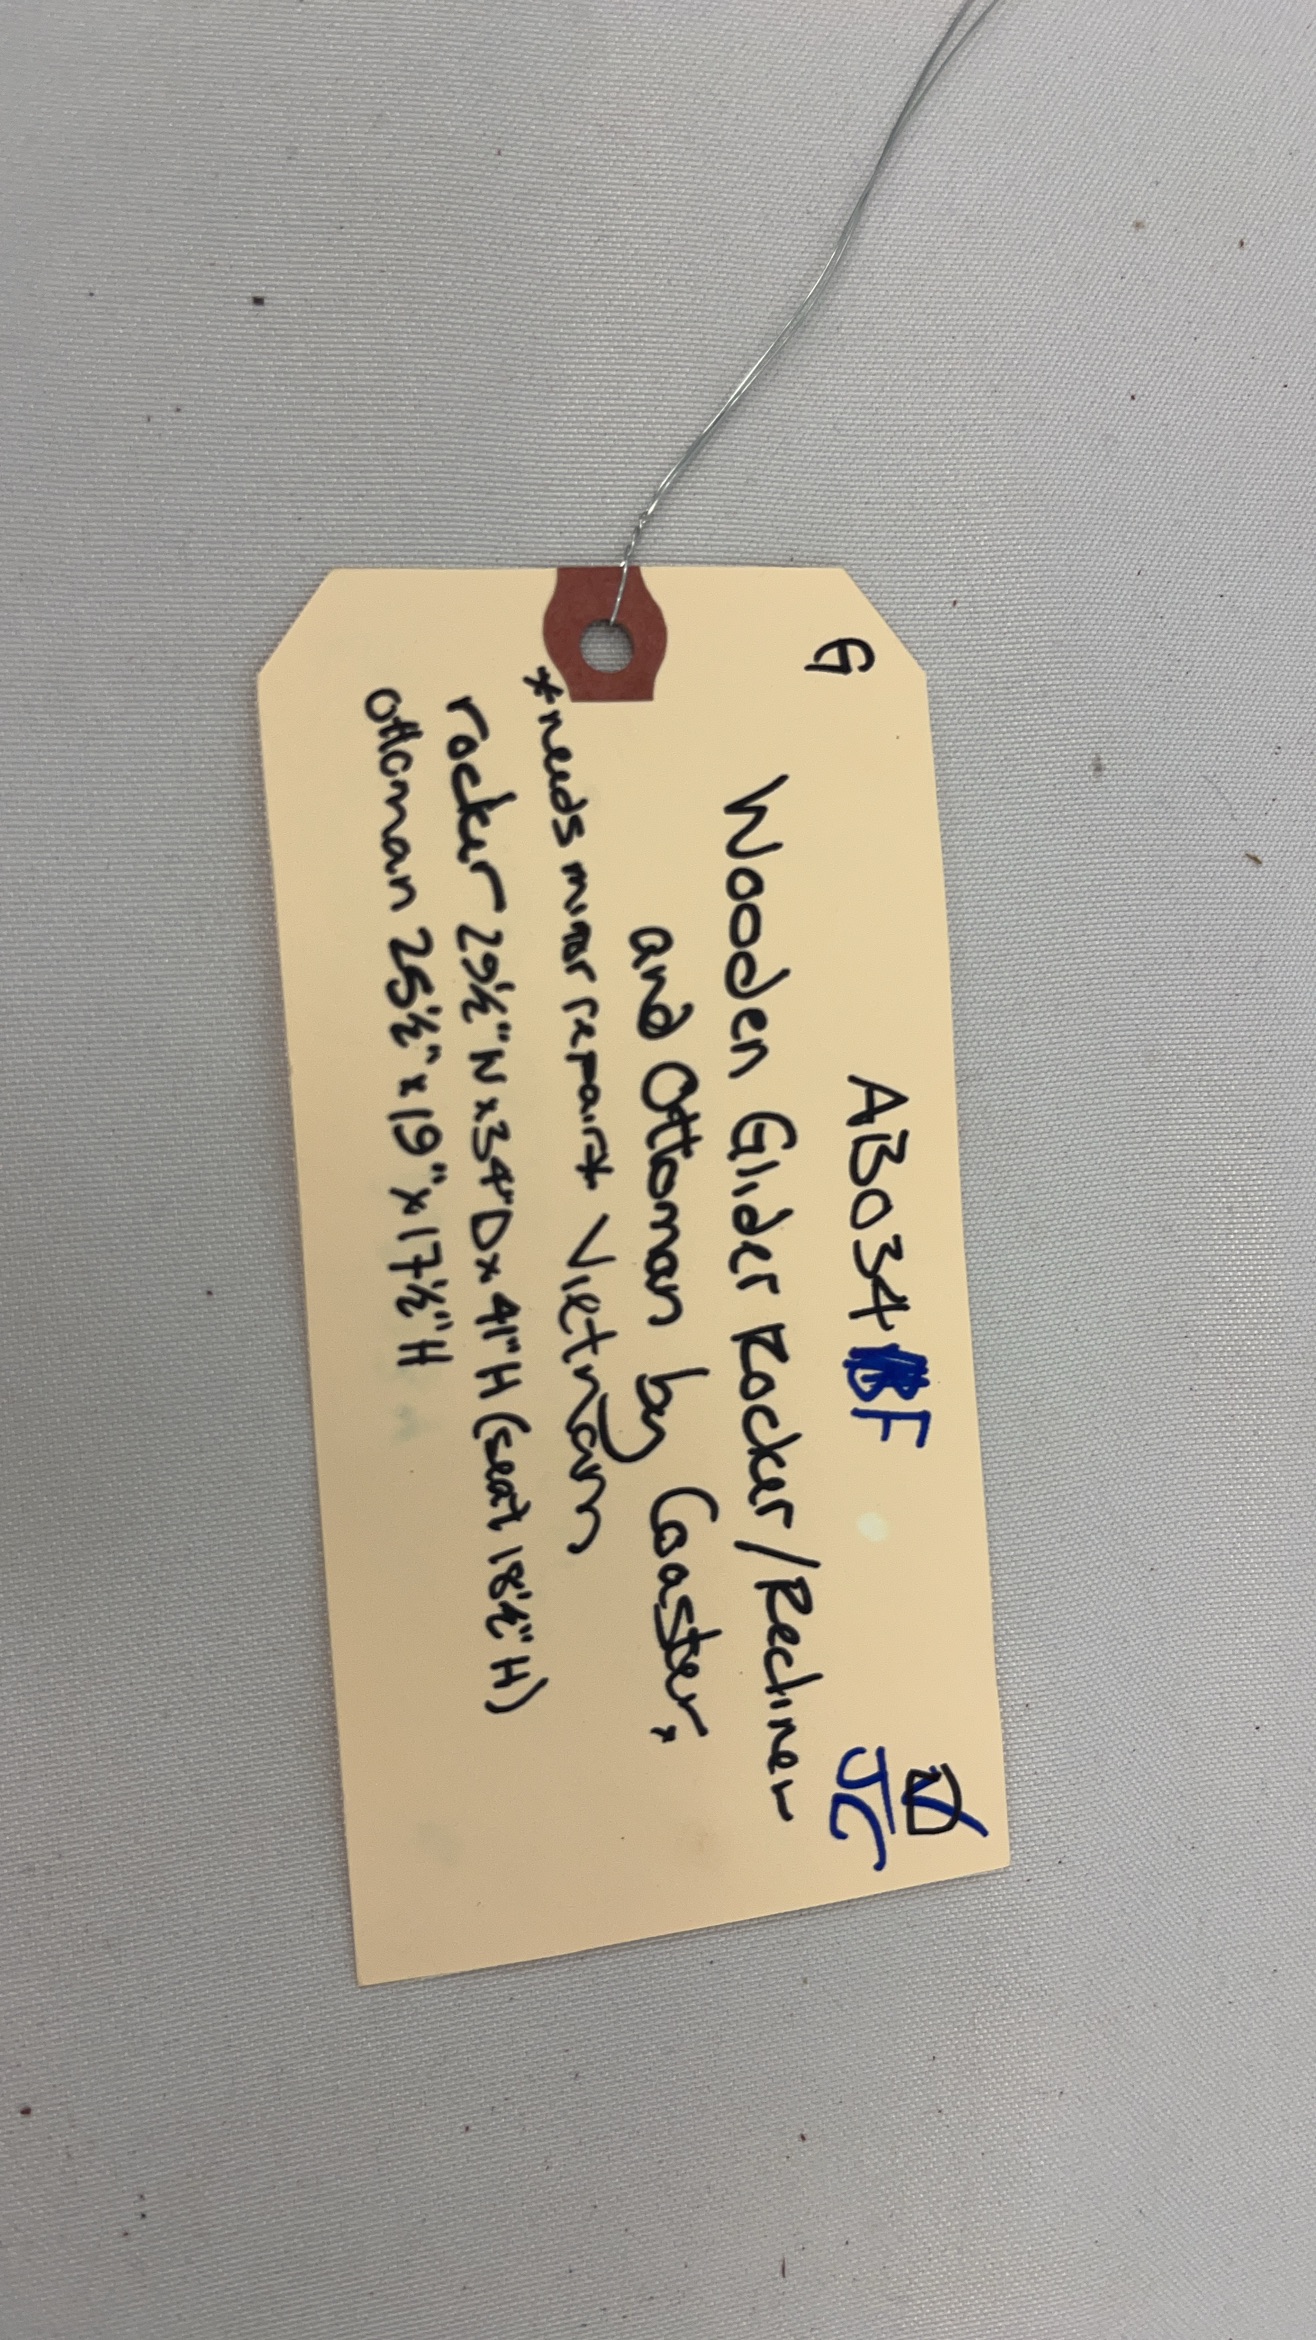 G
AB034 F
JC
Wooden Glider Rocker/Recliner
and Ottoman by Coaster, *
*needs minor repair* Vietnam
rocker 29½" W x 34"D x 41"H (seat 18½" H)
ottoman 25½" x 19" x 17½" H